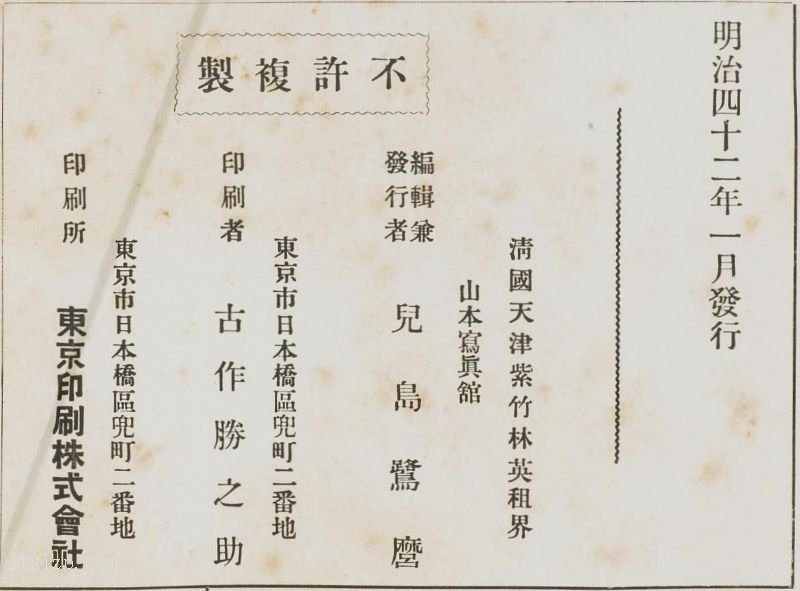 明治四十二年一月發行
不許複製
淸國天津紫竹林英租界
山本寫眞舘
編輯兼
發行者
兒島鷺麿
東京市日本橋區兜町二番地
印刷者
古作勝之助
東京市日本橋區兜町二番地
印刷所
東京印刷株式會社